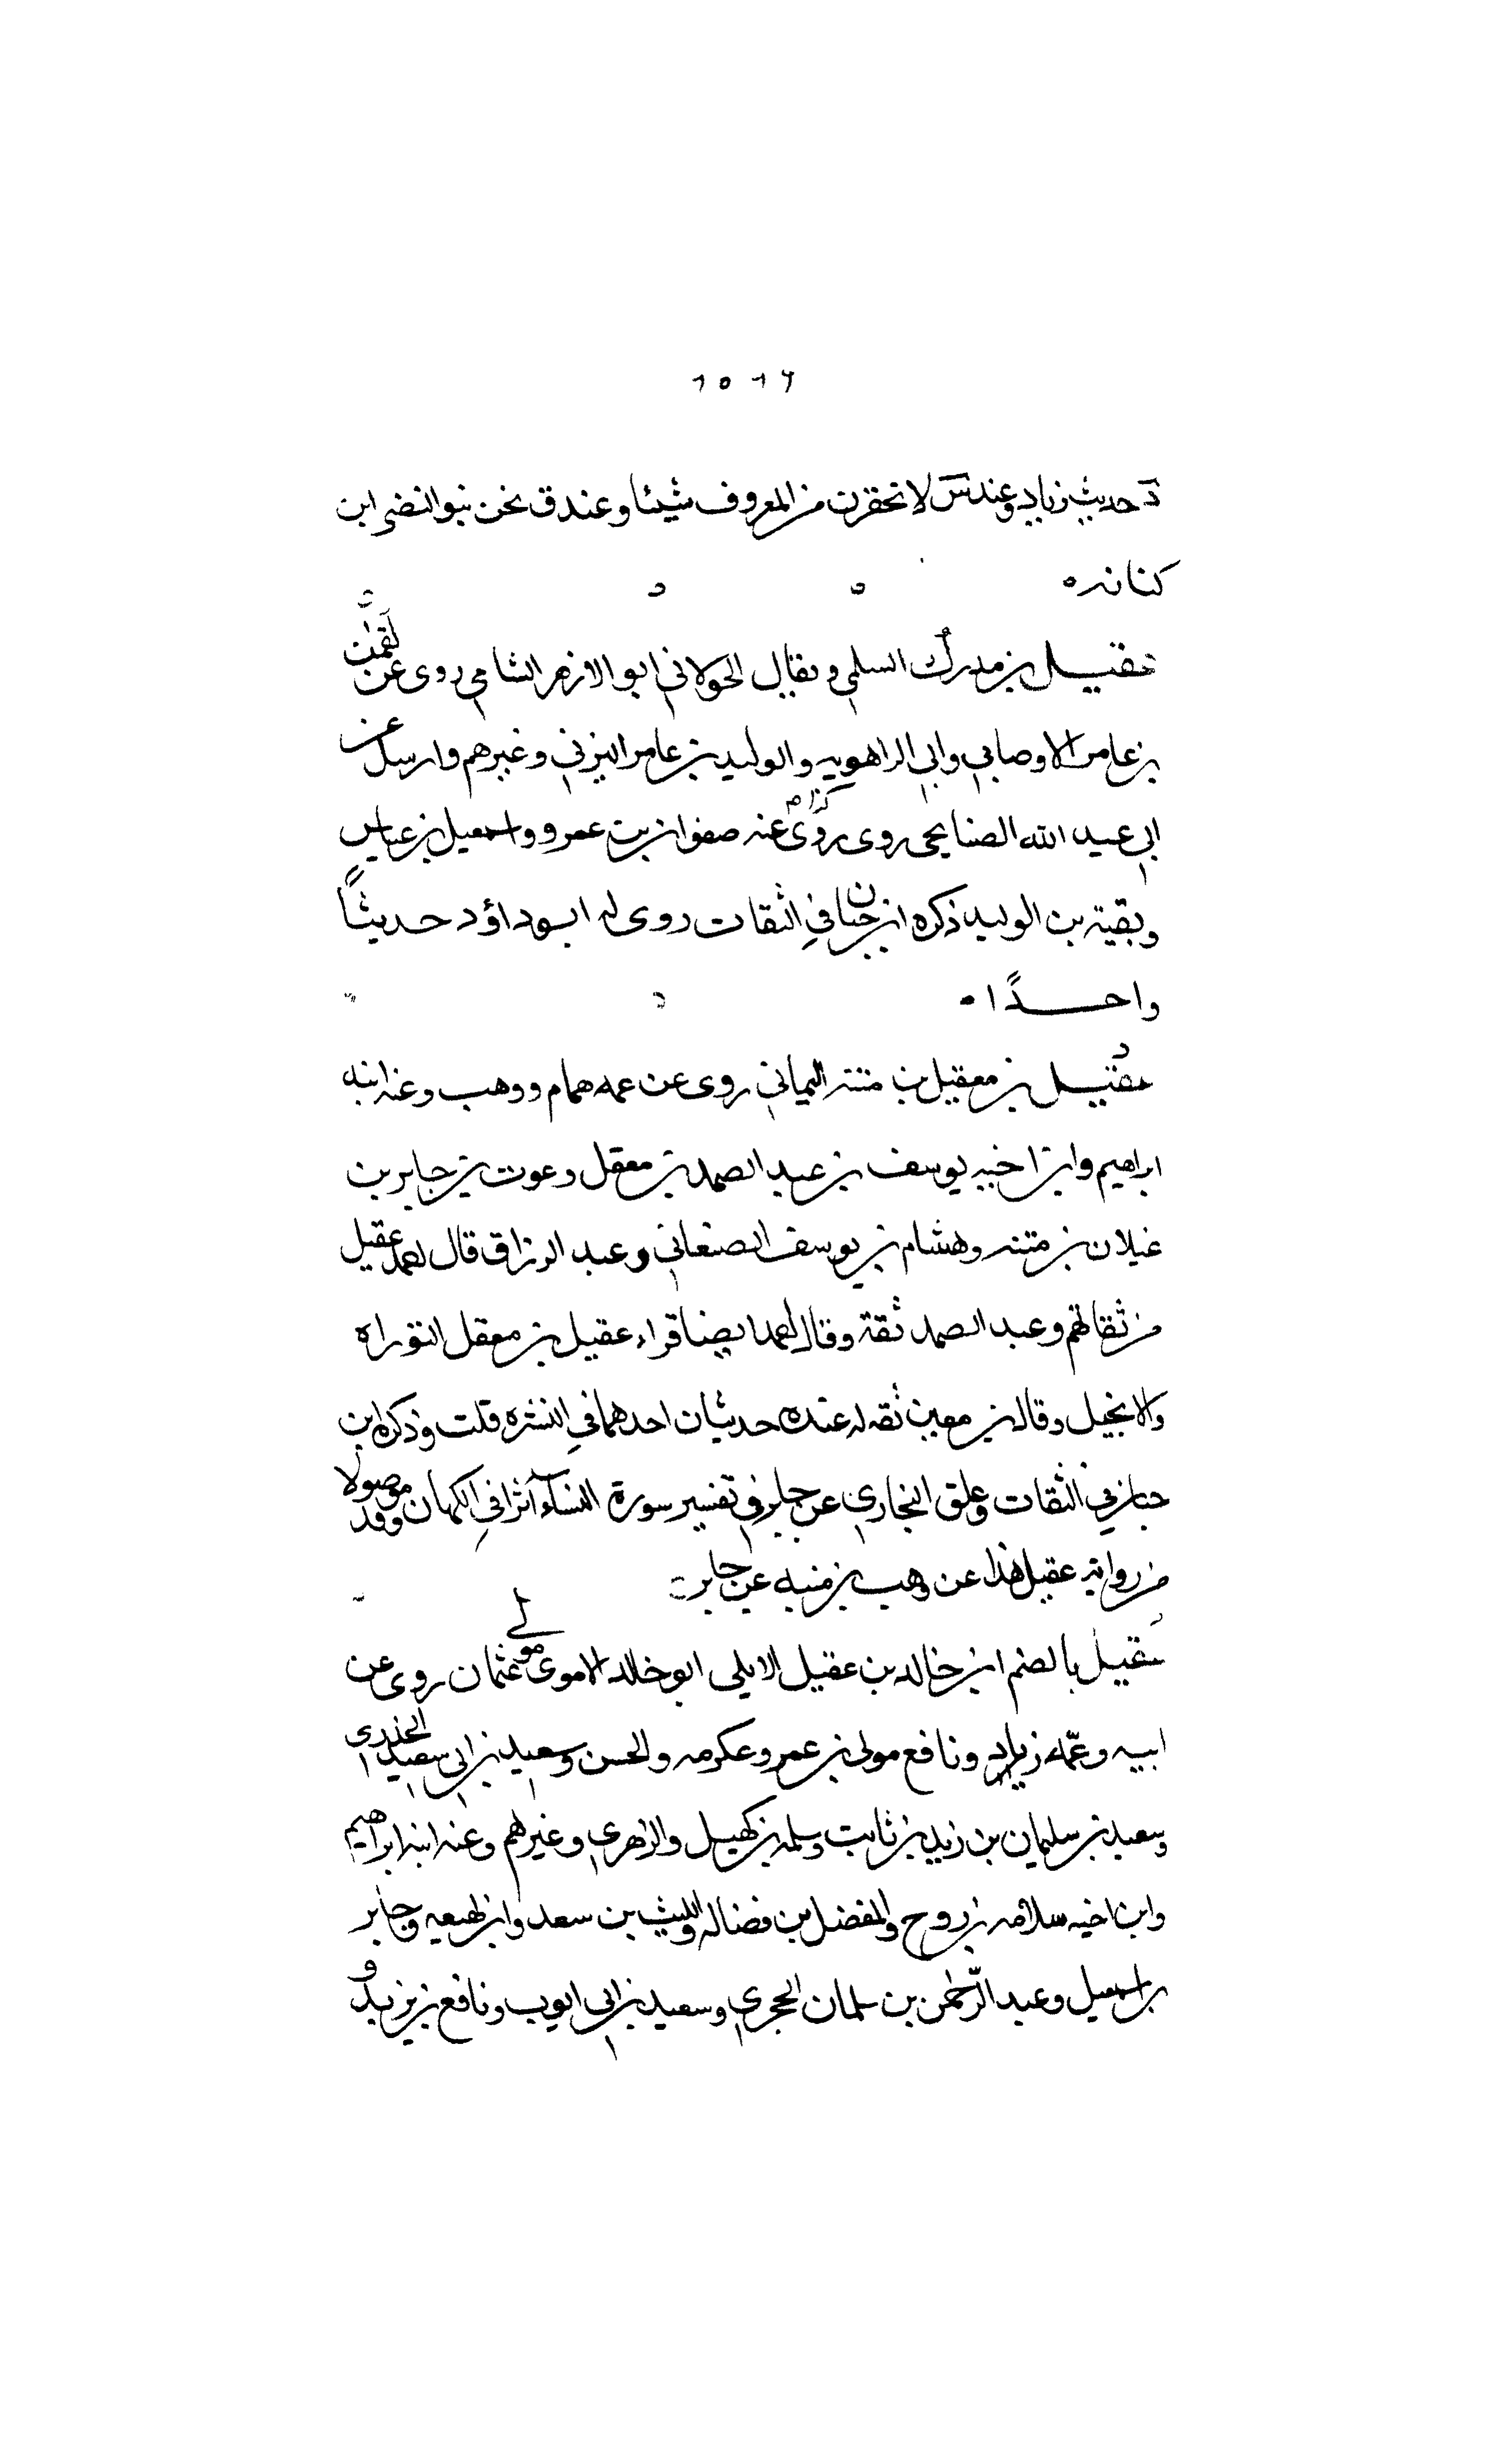 د حديث زياد وعند س لا تحقرن من المعروف شيئا وعند ق نحن بنو النضر ابن
كنانه ه
عقيل بن مدرك السلمي ويقال الخولاني ابو الازهر الشامي روى عن لقمن
بن عامر الاوصابي وابي الزاهريه والوليد بن عامر اليزني وغيرهم وارسل عن
ابي عبد الله الصنابحي روى روى عنه صفوان بن عمرو واسمعيل بن عياش
وبقية بن الوليد ذكره ابن حبان في الثقات روى له ابو داؤد حديثاً
واحداً
عقيل بن معقيل بن منبه اليماني روى عن عمه همام ووهب وعنه ابنه
ابراهيم وابن اخيه يوسف بن عبد الصمد بن معقل وعوث بن جابر بن
غيلان بن منبه وهشام بن يوسف الصنعاني وعبد الرزاق قال احمد عقيل
من ثقاتهم وعبد الصمد ثقة وقال احمد ايضا قراء عقيل بن معقل التوراه
والانجيل وقال بن معين ثقه له عنده حديثان احدهما في النشره قلت وذكره ابن
حبان في الثقات وعلق البخاري عن جابر في تفسير سورة النسآء أثرا في الكهان وقد موصولا
من رواية عقيل هذا عن وهب بن منبه عن جابر
عقيل بالضم ابن خالد بن عقيل الايلي ابو خالد الاموي مولى عثمان روى عن
ابيه وعمّه زياد ونافع مولى بن عمر وعكرمه والحسن وسعيد بن ابي سعيد الخدري
وسعيد بن سليمان بن زيد بن ثابت وسلمه بن كهيل والزهري وغيرهم وعنه ابنه ابراهيم
وابن اخيه سلامه بن روح والمفضل بن فضاله والليث بن سعد وابن لهيعه وجابر
بن اسمعيل وعبد الرّحمٰن بن سلمان الحجري وسعيد بن ابي ايوب ونافع بن يزيد و